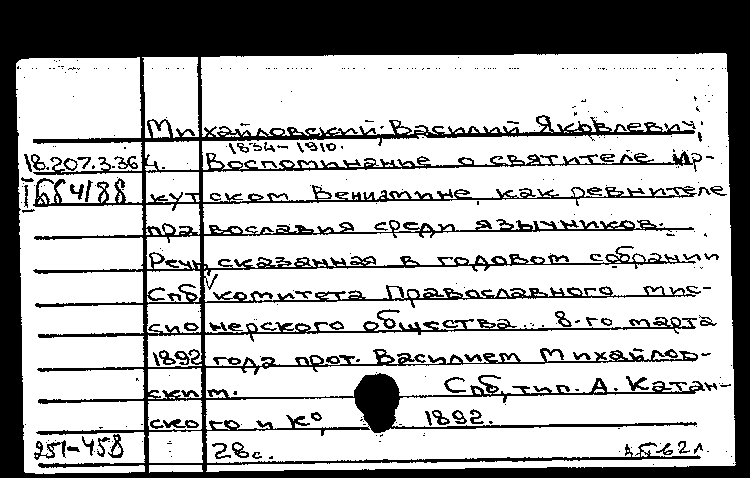 Михайловский, Василий Яковлевич,
1834-1910.
18.207.3.364. Воспоминание о святителе Ир-
кутском Вениамине, как ревнителе
православия среди язычников.
Речь, сказанная в годовом собрании
Спб комитета Православного мис-
сионерского общества... 8-го марта
1892 года прот. Василием Михайлов-
ским. Спб, тип. А. Катан-
ского и Ко, 1892.
251-458 28с.